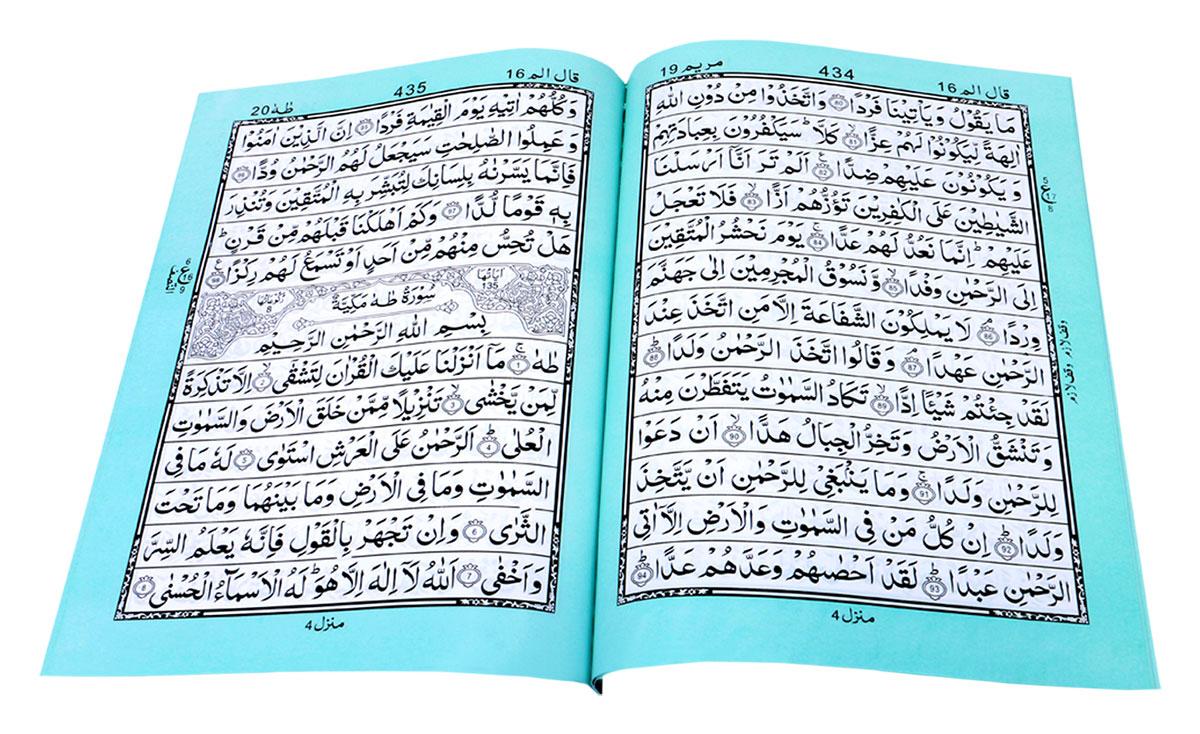 قال الم 16
434
مريم 19
مَا يَقُوْلُ وَيَأْتِيْنَا فَرْدًا 80 وَاتَّخَذُوْا مِنْ دُوْنِ اللّٰهِ
اٰلِهَةً لِّيَكُوْنُوْا لَهُمْ عِزًّا 81 كَلَّا ؕ سَيَكْفُرُوْنَ بِعِبَادَتِهِمْ
وَ يَكُوْنُوْنَ عَلَيْهِمْ ضِدًّا 82 اَلَمْ تَرَ اَنَّآ اَرْسَلْنَا
الشَّيٰطِيْنَ عَلَى الْكٰفِرِيْنَ تَؤُزُّهُمْ اَزًّا 83 فَلَا تَعْجَلْ
عَلَيْهِمْ ؕ اِنَّمَا نَعُدُّ لَهُمْ عَدًّا 84 يَوْمَ نَحْشُرُ الْمُتَّقِيْنَ
اِلَى الرَّحْمٰنِ وَفْدًا 85 وَّ نَسُوْقُ الْمُجْرِمِيْنَ اِلٰى جَهَنَّمَ
وِرْدًا 86 لَا يَمْلِكُوْنَ الشَّفَاعَةَ اِلَّا مَنِ اتَّخَذَ عِنْدَ
الرَّحْمٰنِ عَهْدًا 87 وَ قَالُوا اتَّخَذَ الرَّحْمٰنُ وَلَدًا 88
لَقَدْ جِئْتُمْ شَيْئًا اِدًّا 89 تَكَادُ السَّمٰوٰتُ يَتَفَطَّرْنَ مِنْهُ
وَ تَنْشَقُّ الْاَرْضُ وَ تَخِرُّ الْجِبَالُ هَدًّا 90 اَنْ دَعَوْا
لِلرَّحْمٰنِ وَلَدًا 91 وَ مَا يَنْۢبَغِيْ لِلرَّحْمٰنِ اَنْ يَّتَّخِذَ
وَلَدًا 92 اِنْ كُلُّ مَنْ فِى السَّمٰوٰتِ وَالْاَرْضِ اِلَّاۤ اٰتِى
الرَّحْمٰنِ عَبْدًا 93 لَقَدْ اَحْصٰىهُمْ وَعَدَّهُمْ عَدًّا 94
وقف لازم
وقف لازم
منزل 4
قال الم 16
435
طٰهٰ 20
وَ كُلُّهُمْ اٰتِيْهِ يَوْمَ الْقِيٰمَةِ فَرْدًا 95 اِنَّ الَّذِيْنَ اٰمَنُوْا
وَ عَمِلُوا الصّٰلِحٰتِ سَيَجْعَلُ لَهُمُ الرَّحْمٰنُ وُدًّا 96
فَاِنَّمَا يَسَّرْنٰهُ بِلِسَانِكَ لِتُبَشِّرَ بِهِ الْمُتَّقِيْنَ وَتُنْذِرَ
بِهٖ قَوْمًا لُّدًّا 97 وَكَمْ اَهْلَكْنَا قَبْلَهُمْ مِّنْ قَرْنٍ ؕ
هَلْ تُحِسُّ مِنْهُمْ مِّنْ اَحَدٍ اَوْ تَسْمَعُ لَهُمْ رِكْزًا 98
اٰيَاتُهَا 135
سُوْرَةُ طٰهٰ مَكِّيَّةٌ
رُكُوْعَاتُهَا 8
بِسْمِ اللّٰهِ الرَّحْمٰنِ الرَّحِيْمِ
طٰهٰ 1 مَآ اَنْزَلْنَا عَلَيْكَ الْقُرْاٰنَ لِتَشْقٰٓى 2 اِلَّا تَذْكِرَةً
لِّمَنْ يَّخْشٰى 3 تَنْزِيْلًا مِّمَّنْ خَلَقَ الْاَرْضَ وَالسَّمٰوٰتِ
الْعُلٰى 4 اَلرَّحْمٰنُ عَلَى الْعَرْشِ اسْتَوٰى 5 لَهٗ مَا فِى
السَّمٰوٰتِ وَمَا فِى الْاَرْضِ وَمَا بَيْنَهُمَا وَمَا تَحْتَ
الثَّرٰى 6 وَاِنْ تَجْهَرْ بِالْقَوْلِ فَاِنَّهٗ يَعْلَمُ السِّرَّ
وَ اَخْفٰى 7 اَللّٰهُ لَآ اِلٰهَ اِلَّا هُوَ ؕ لَهُ الْاَسْمَآءُ الْحُسْنٰى 8
منزل 4